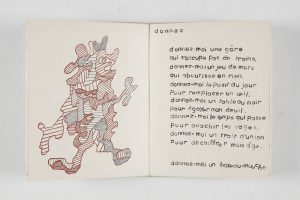 donnez
donnez-moi une gare
qui s'occupe pas de trains,
donnez-moi un jeu de mors
qui n'bourisse en rien.
donnez-moi le point du jour
Pour remplacer un œil,
donnez-moi un tableau noir
Pour égayer mon deuil.
donnez-moi le temps qui passe
Pour avachir les sages,
donnez-moi un trait d'union
Pour déchiffrer mon âge.
donnez-moi un